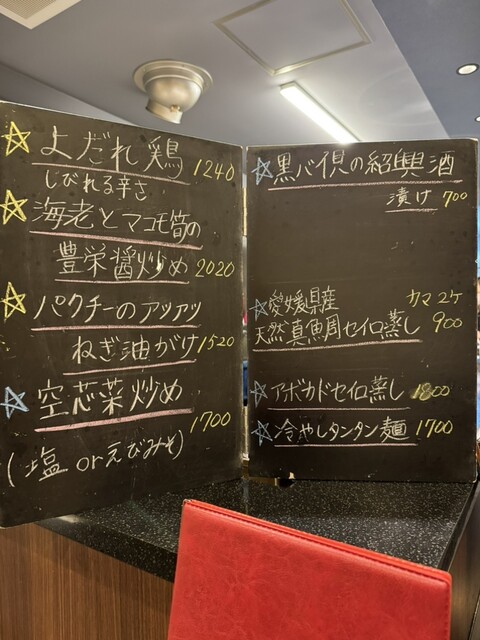 よだれ鶏 1240
しびれる辛さ
海老とマコモ筍の
豊栄醤炒め 2020
パクチーのアツアツ
ねぎ油がけ 1520
空芯菜炒め
1700
(塩 orえびみそ)
黒バイ貝の紹興酒
漬け 700
愛媛県産 カマ コケ
天然真魚周セイロ蒸し 900
アボカドセイロ蒸し 1800
冷やしタンタン麺 1700